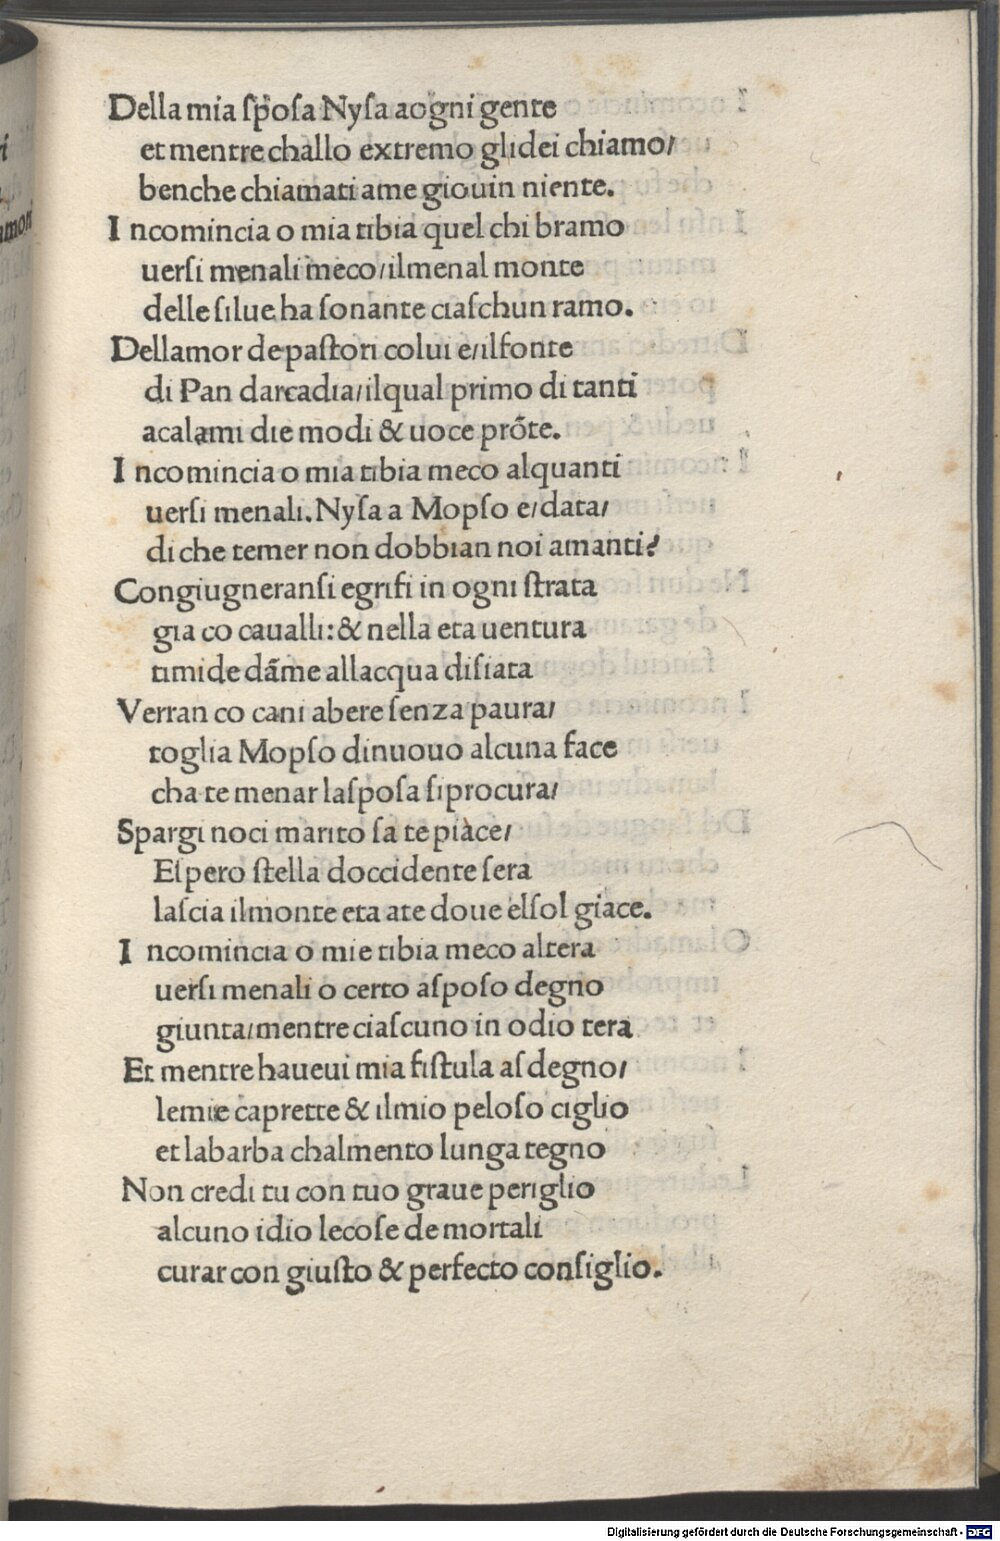 Della mia ſpoſa Nyſa aogni gente
et mentre challo extremo glidei chiamo/
benche chiamati ame giouin niente.
I ncomincia o mia tibia quel chi bramo
uerſi menali meco/ilmenal monte
delle ſilue ha ſonante ciaſchun ramo.
Dellamor de paſtori colui e/ilfonte
di Pan darcadia/ilqual primo di tanti
acalami die modi & uoce prōte.
I ncomincia o mia tibia meco alquanti
uerſi menali. Nyſa a Mopſo e/data/
di che temer non dobbian noi amanti?
Congiugneranſi egrifi in ogni ſtrata
gia co caualli: & nella eta uentura
timide dāme allacqua diſiata
Verran co cani abere ſenza paura/
toglia Mopſo dinuouo alcuna face
cha te menar laſpoſa ſiprocura/
Spargi noci marito ſa te piace/
Eſpero ſtella doccidente ſera
laſcia ilmonte eta ate doue elſol giace.
I ncomincia o mie tibia meco altera
uerſi menali o certo aſpoſo degno
giunta/mentre ciaſcuno in odio tera
Et mentre haueui mia fiſtula aſdegno/
lemie caprette & ilmio peloſo ciglio
et labarba chalmento lunga tegno
Non credi tu con tuo graue periglio
alcuno idio lecoſe de mortali
curar con giuſto & perfecto conſiglio.
Digitalisierung gefördert durch die Deutsche Forschungsgemeinschaft - DFG